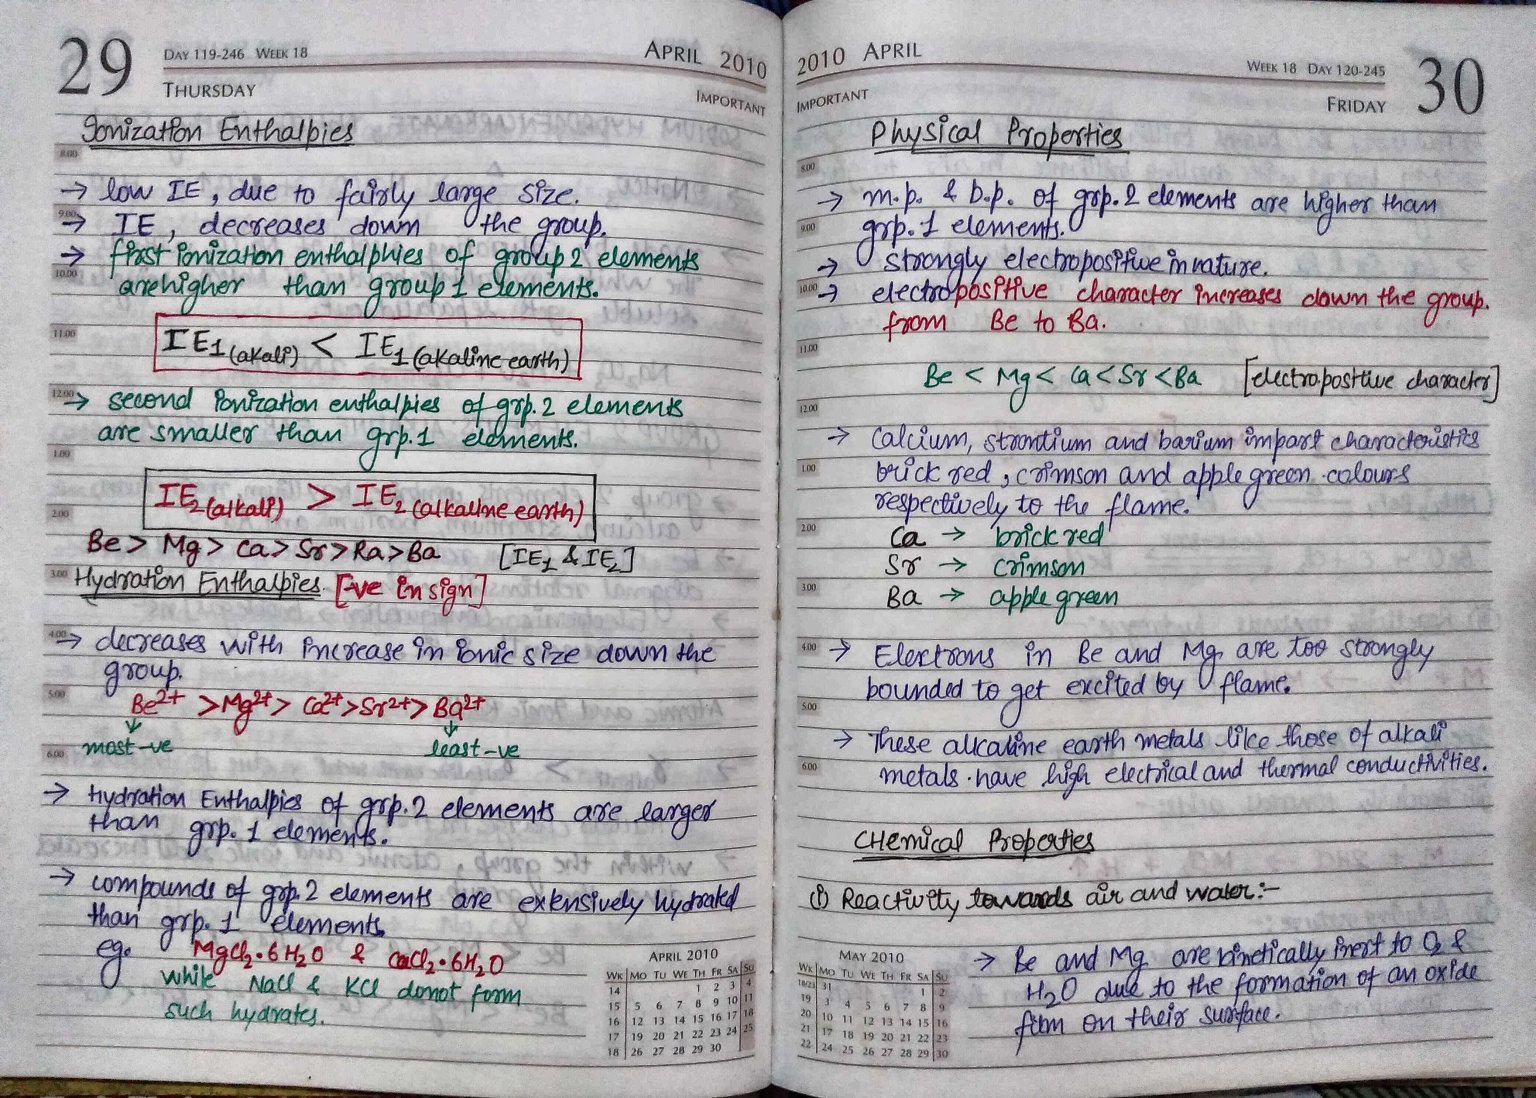 29
DAY 119-246 WEEK 18
APRIL 2010
THURSDAY
IMPORTANT
Ionization Enthalpies
8.00
→ low IE, due to fairly large size.
9.00
→ IE, decreases down the group.
→ first ionization enthalphies of group 2 elements
10.00
are higher than group 1 elements.
11.00
IE1 (akali) < IE1 (akaline earth)
12.00
→ second ionization enthalpies of grp. 2 elements
are smaller than grp. 1 elements.
1.00
IE2 (alkali) > IE2 (alkaline earth)
2.00
Be > Mg > Ca > Sr > Ra > Ba [IE1 & IE2]
3.00
Hydration Enthalpies [-ve in sign]
4.00
→ decreases with increase in ionic size down the
group.
5.00
Be2+ > Mg2+ > Ca2+ > Sr2+ > Ba2+
↓ ↓
6.00
most -ve least -ve
→ Hydration Enthalpies of grp. 2 elements are larger
than grp. 1 elements.
→ compounds of grp. 2 elements are extensively hydrated
than grp. 1 elements.
eg. MgCl2·6H2O & CaCl2·6H2O
while NaCl & KCl donot form
such hydrates.
APRIL 2010
WK MO TU WE TH FR SA SU
14 1 2 3 4
15 5 6 7 8 9 10 11
16 12 13 14 15 16 17 18
17 19 20 21 22 23 24 25
18 26 27 28 29 30
2010 APRIL
WEEK 18 DAY 120-245
30
IMPORTANT
FRIDAY
Physical Properties
8.00
→ m.p. & b.p. of grp. 2 elements are higher than
9.00
grp. 1 elements.
→ strongly electropositive in nature.
10.00
→ electropositive character increases down the group.
from Be to Ba.
11.00
Be < Mg < Ca < Sr < Ba [electropositive character]
12.00
→ Calcium, strontium and barium impart characteristics
1.00
brick red, crimson and apple green colours
respectively to the flame.
2.00
Ca → brick red
Sr → crimson
3.00
Ba → apple green
4.00
→ Electrons in Be and Mg are too strongly
bounded to get excited by flame.
5.00
→ These alcaline earth metals like those of alkali
6.00
metals have high electrical and thermal conductivities.
CHemical Properties
(i) Reactivity towards air and water:-
→ Be and Mg are kinetically inert to O2 &
H2O due to the formation of an oxide
film on their surface.
MAY 2010
WK MO TU WE TH FR SA SU
18/23 31 1 2
19 3 4 5 6 7 8 9
20 10 11 12 13 14 15 16
21 17 18 19 20 21 22 23
22 24 25 26 27 28 29 30